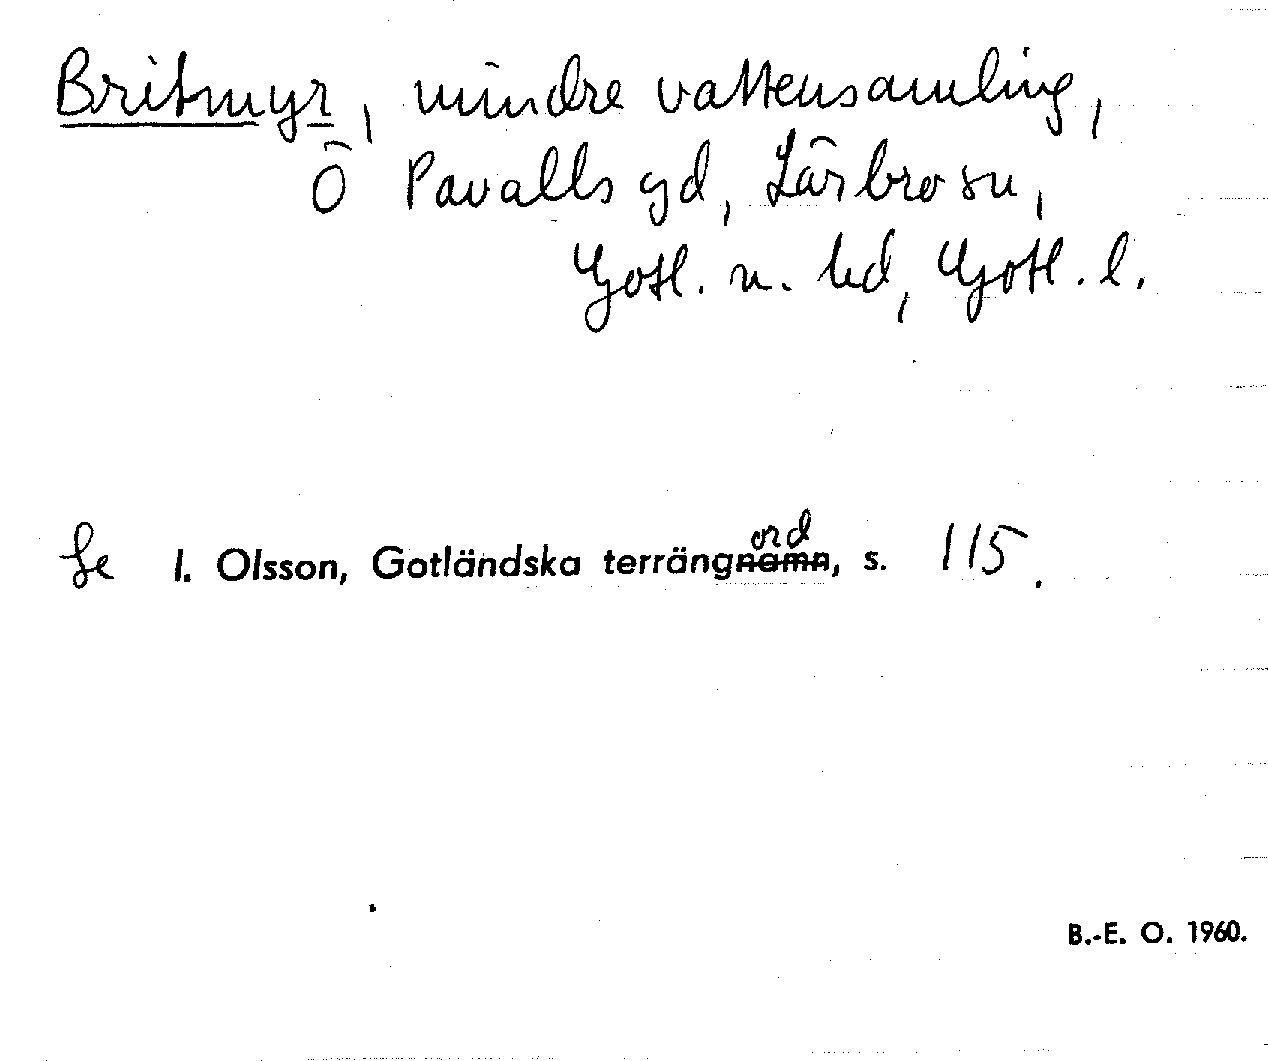 Britmyr, mindre vattensamling,
Ö Pavalls gd, Lärbro sn,
Gotl. n. hd, Gotl. l.
Se I. Olsson, Gotländska terrängnamn ord, s. 115.
B.-E. O. 1960.